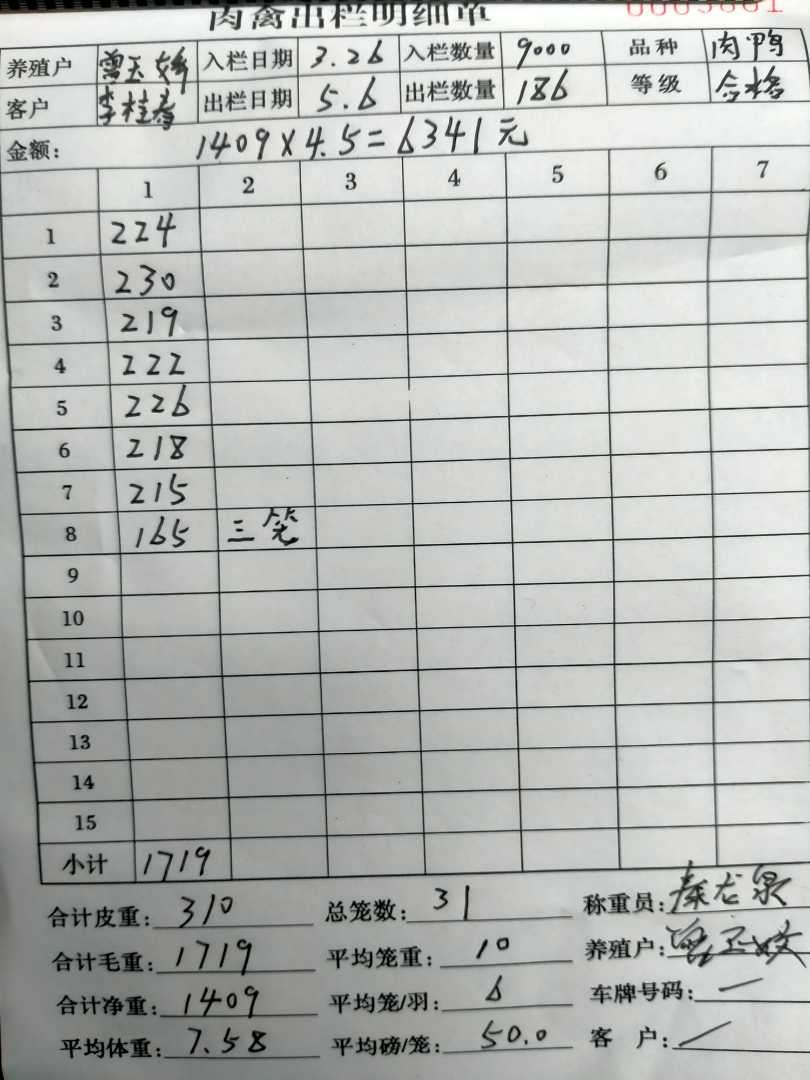 肉禽出栏明细单
养殖户 曾玉娇 入栏日期 3.26 入栏数量 9000 品种 肉鸭
客户 李桂春 出栏日期 5.6 出栏数量 186 等级 合格
金额: 1409×4.5=6341元
1 2 3 4 5 6 7
1 224
2 230
3 219
4 222
5 226
6 218
7 215
8 165 三笼
9
10
11
12
13
14
15
小计 1719
合计皮重: 310 总笼数: 31 称重员: 秦龙泉
合计毛重: 1719 平均笼重: 10 养殖户:
合计净重: 1409 平均笼/羽: 6 车牌号码: —
平均体重: 7.58 平均磅/笼: 50.0 客 户: /